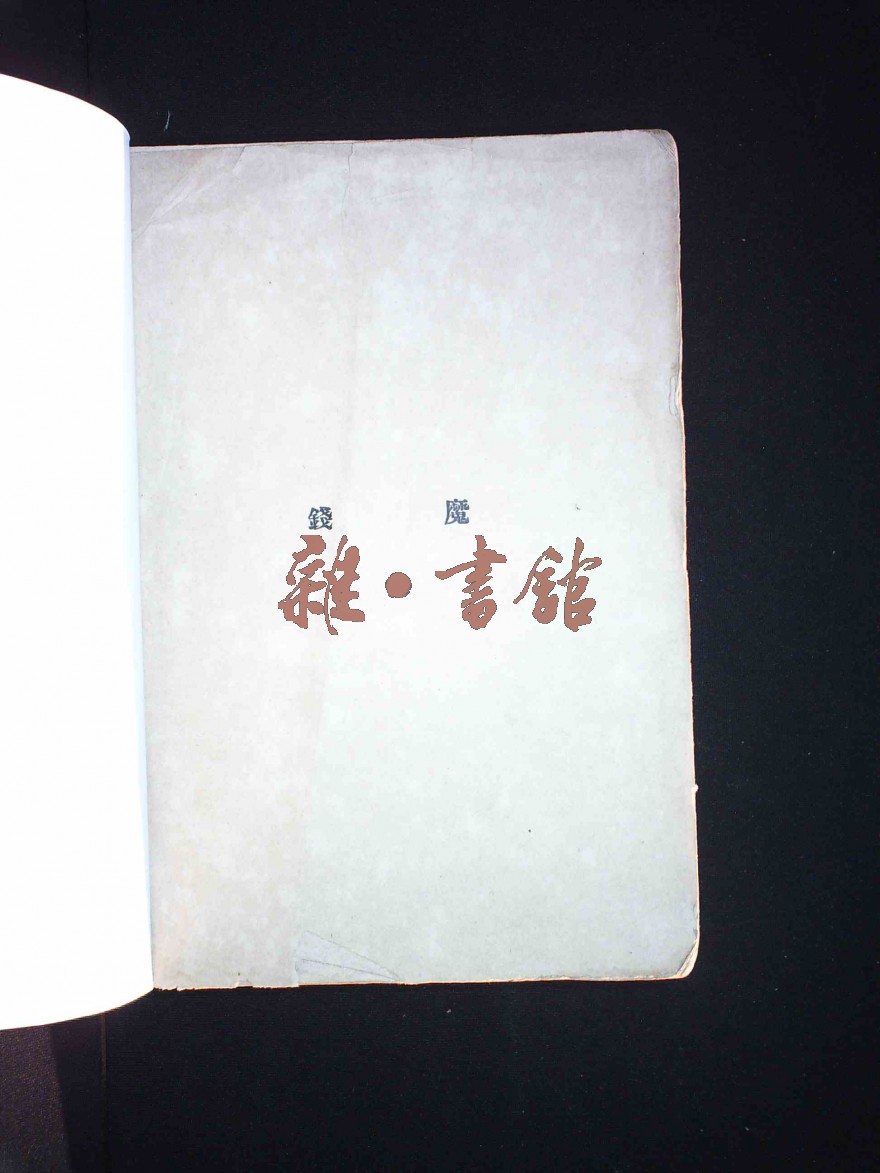 錢 魔
雜·書館